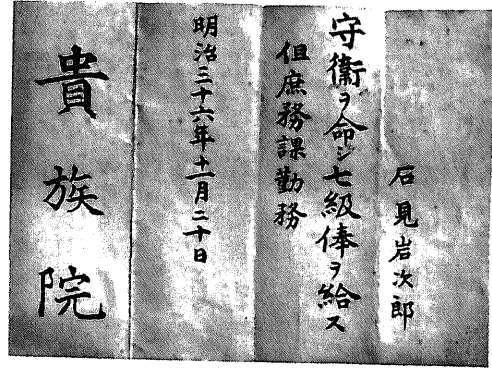 石見岩次郎
守衛ヲ命シ七級俸ヲ給ス
但庶務課勤務
明治三十六年十一月二十日
貴族院